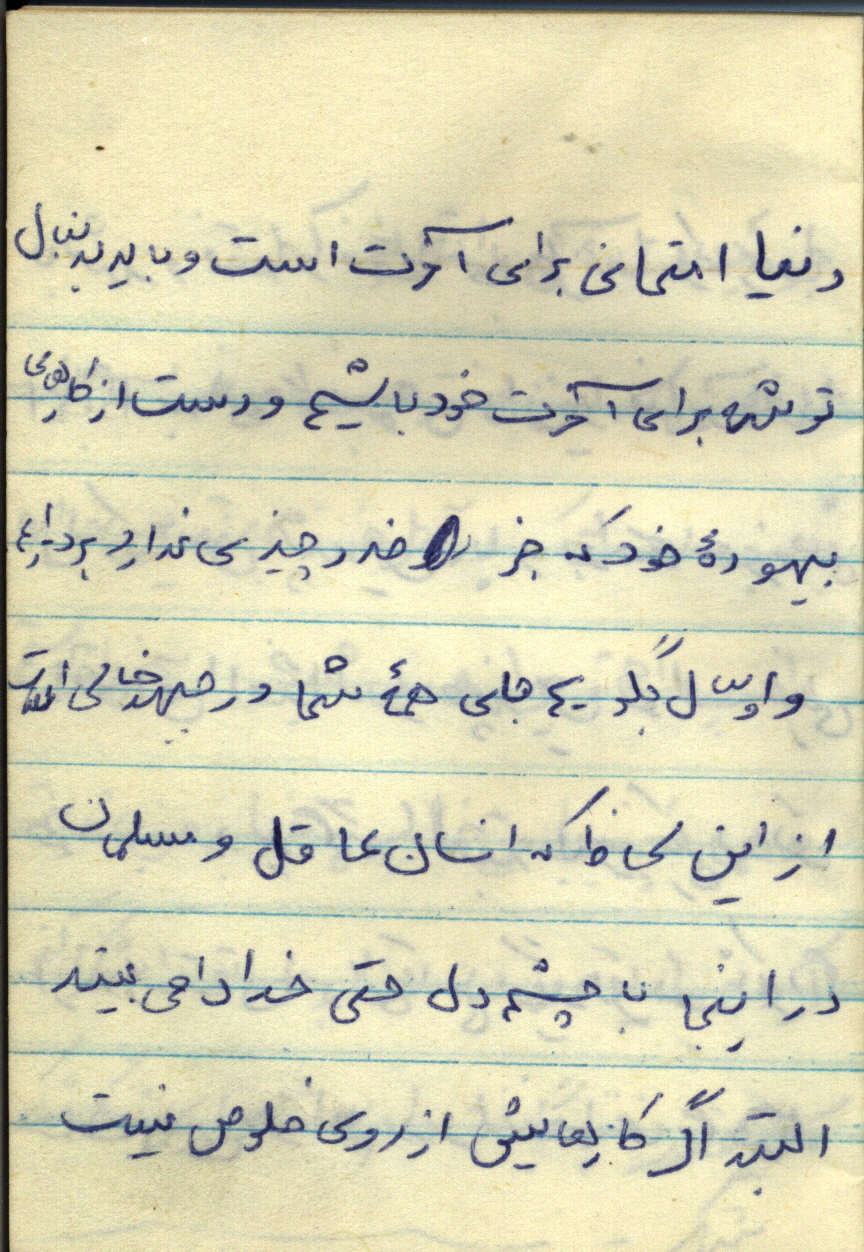 دنیا امتحانی برای آخرت است و باید بدنبال
توشه برای آخرت خود باشیم و دست از کارهای
بیهودهٔ خود که جز ضرر چیزی ندارد برداریم
و اوّل بگویم جای همهٔ شما در جبهه خالی است
از این لحاظ که انسان عاقل و مسلمان
در اینجا با چشم دل حتی خدا را می بیند
البته اگر کارهایش از روی خلوص نیست